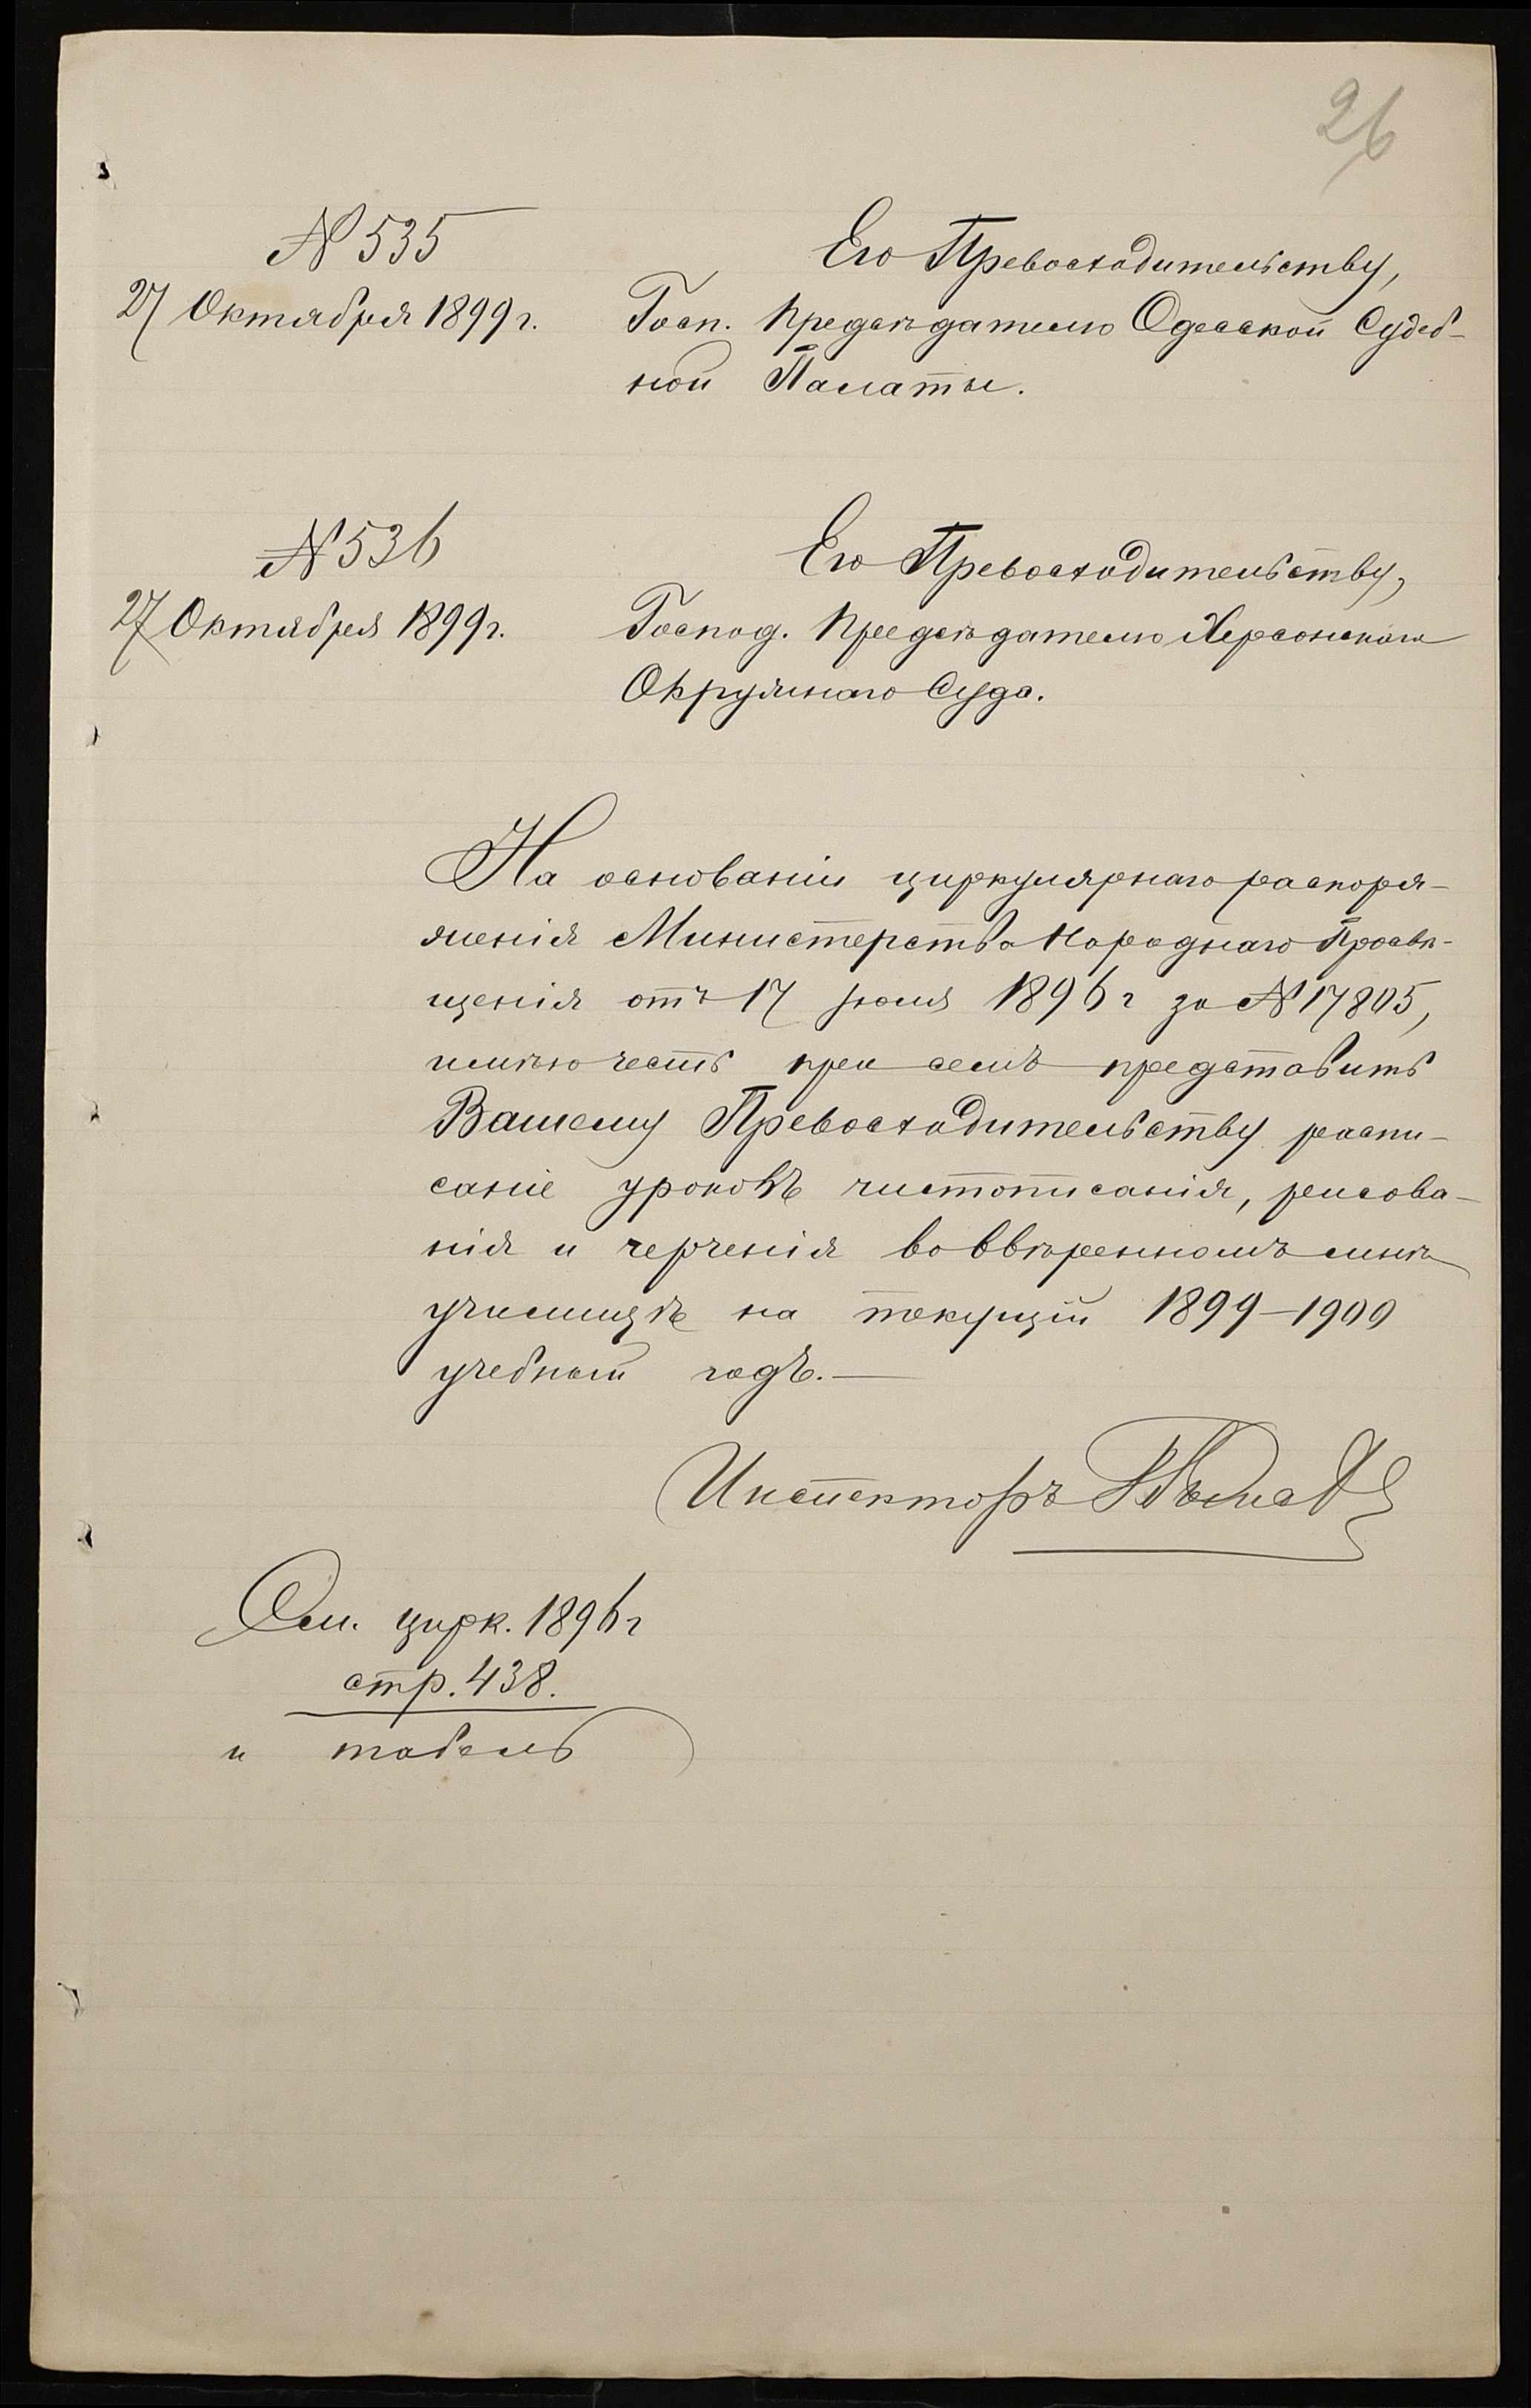 26
№ 535
27 Октября 1899 г.
Его Превосходительству,
Госп. Предсѣдателю Одесской Судеб-
ной Палаты.
№ 536
27 Октября 1899 г.
Его Превосходительству,
Господ. Предсѣдателю Херсонскаго
Окружнаго Суда.
На основаніи циркулярнаго распоря-
женія Министерства Народнаго Просвѣ-
щенія отъ 17 Іюля 1896 г за № 17805,
имѣю честь при семъ представить
Вашему Превосходительству распи-
саніе уроковъ чистописанія, рисова-
нія и черченія во ввѣренномъ мнѣ
училищѣ на текущій 1899–1900
учебный годъ.—
Инспекторъ
См. цирк. 1896 г
стр. 438.
и табель